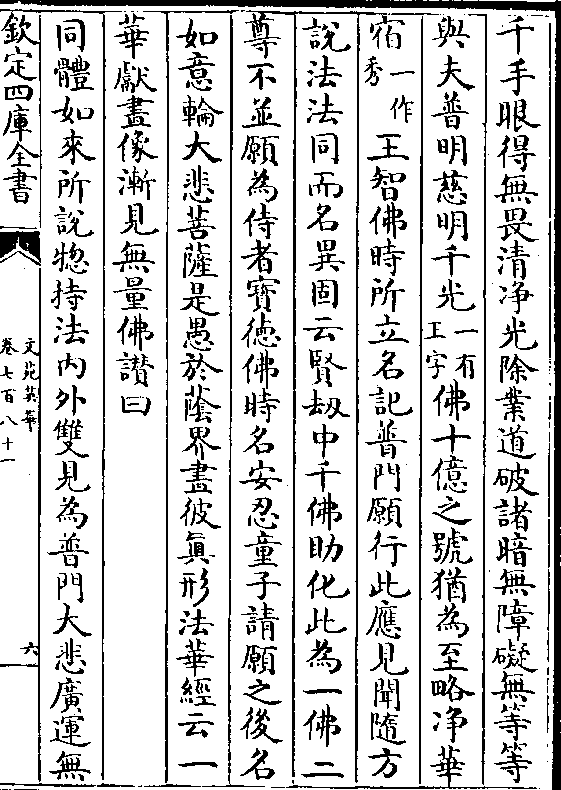 千手眼得無畏清浄光除業道破諸暗無障礙無等等
與夫普明慈明千光一有王字佛十億之號猶為至略浄華
宿一作秀王智佛時所立名記普門願行此應見聞隨方
說法法同而名異固云賢劫中千佛助化此為一佛二
尊不並願為侍者寳徳佛時名安忍童子請願之後名
如意輪大悲菩薩是愚於蔭界畫彼真形法華經云一
華獻畫像漸見無量佛讃曰
同體如來所說惣持法内外雙見為普門大悲廣運無
欽定四庫全書
文苑英華
卷七百八十一
六